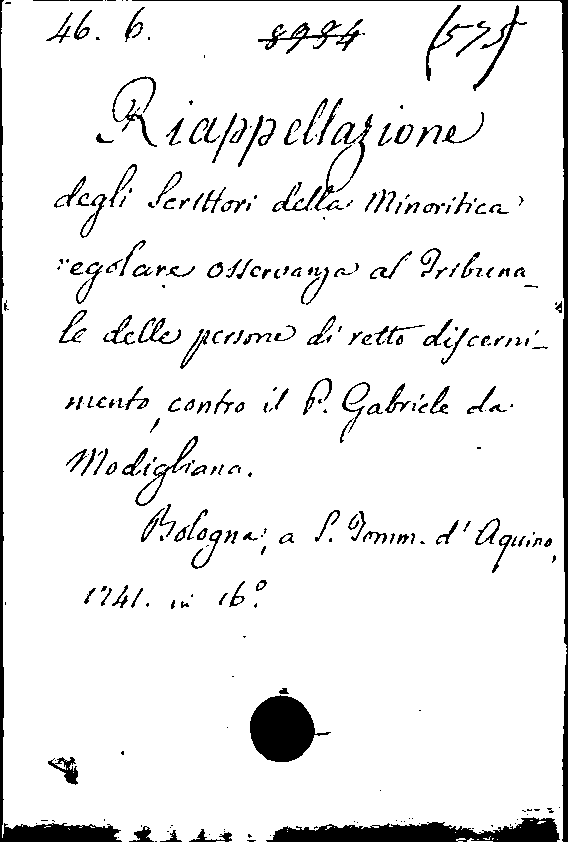 46. 6. 8984 (575)
Riappellazione
degli Scrittori della Minoritica
regolare osservanza al Tribuna_
le delle persone di retto discerni_
mento, contro il P. Gabriele da
Modigliana.
Bologna, a S. Tomm. d' Aquino,
1741. in 16.º